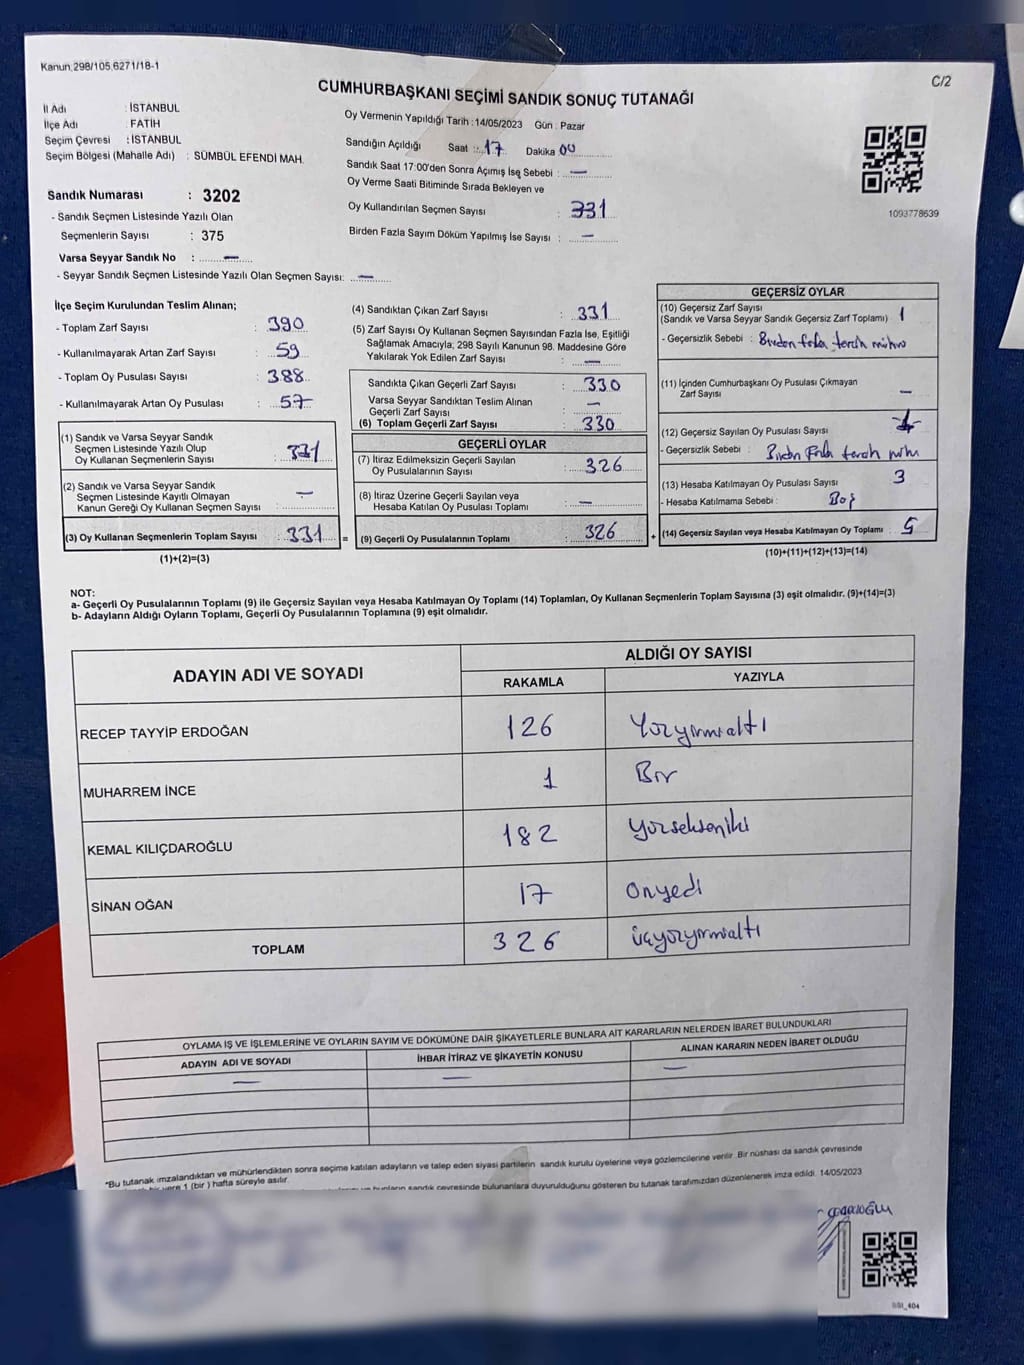 Kanun 298/105,6271/18-1
C/2
CUMHURBAŞKANI SEÇİMİ SANDIK SONUÇ TUTANAĞI
İl Adı : İSTANBUL
İlçe Adı : FATİH
Seçim Çevresi : İSTANBUL
Seçim Bölgesi (Mahalle Adı) : SÜMBÜL EFENDİ MAH.
Sandık Numarası : 3202
- Sandık Seçmen Listesinde Yazılı Olan
Seçmenlerin Sayısı : 375
Varsa Seyyar Sandık No : —
- Seyyar Sandık Seçmen Listesinde Yazılı Olan Seçmen Sayısı: —
Oy Vermenin Yapıldığı Tarih : 14/05/2023 Gün : Pazar
Sandığın Açıldığı Saat : 17 Dakika 00
Sandık Saat 17:00'den Sonra Açımış İse Sebebi : —
Oy Verme Saati Bitiminde Sırada Bekleyen ve
Oy Kullandırılan Seçmen Sayısı : 331
Birden Fazla Sayım Döküm Yapılmış İse Sayısı : —
1093778639
İlçe Seçim Kurulundan Teslim Alınan;
- Toplam Zarf Sayısı : 390
- Kullanılmayarak Artan Zarf Sayısı : 59
- Toplam Oy Pusulası Sayısı : 388
- Kullanılmayarak Artan Oy Pusulası : 57
(1) Sandık ve Varsa Seyyar Sandık
Seçmen Listesinde Yazılı Olup
Oy Kullanan Seçmenlerin Sayısı : 331
(2) Sandık ve Varsa Seyyar Sandık
Seçmen Listesinde Kayıtlı Olmayan
Kanun Gereği Oy Kullanan Seçmen Sayısı : —
(3) Oy Kullanan Seçmenlerin Toplam Sayısı : 331 =
(1)+(2)=(3)
(4) Sandıktan Çıkan Zarf Sayısı : 331
(5) Zarf Sayısı Oy Kullanan Seçmen Sayısından Fazla İse, Eşitliği
Sağlamak Amacıyla; 298 Sayılı Kanunun 98. Maddesine Göre
Yakılarak Yok Edilen Zarf Sayısı : —
Sandıkta Çıkan Geçerli Zarf Sayısı : 330
Varsa Seyyar Sandıktan Teslim Alınan
Geçerli Zarf Sayısı : —
(6) Toplam Geçerli Zarf Sayısı : 330
GEÇERLİ OYLAR
(7) İtiraz Edilmeksizin Geçerli Sayılan
Oy Pusulalarının Sayısı : 326
(8) İtiraz Üzerine Geçerli Sayılan veya
Hesaba Katılan Oy Pusulası Toplamı : —
(9) Geçerli Oy Pusulalarının Toplamı : 326 +
GEÇERSİZ OYLAR
(10) Geçersiz Zarf Sayısı
(Sandık ve Varsa Seyyar Sandık Geçersiz Zarf Toplamı) 1
- Geçersizlik Sebebi : Birden fazla tercih mührü
(11) İçinden Cumhurbaşkanı Oy Pusulası Çıkmayan
Zarf Sayısı —
(12) Geçersiz Sayılan Oy Pusulası Sayısı 1
- Geçersizlik Sebebi : Birden Fazla
(13) Hesaba Katılmayan Oy Pusulası Sayısı 3
- Hesaba Katılmama Sebebi : Boş
(14) Geçersiz Sayılan veya Hesaba Katılmayan Oy Toplamı 5
(10)+(11)+(12)+(13)=(14)
NOT:
a- Geçerli Oy Pusulalarının Toplamı (9) ile Geçersiz Sayılan veya Hesaba Katılmayan Oy Toplamı (14) Toplamları, Oy Kullanan Seçmenlerin Toplam Sayısına (3) eşit olmalıdır. (9)+(14)=(3)
b- Adayların Aldığı Oyların Toplamı, Geçerli Oy Pusulalarının Toplamına (9) eşit olmalıdır.
ADAYIN ADI VE SOYADI ALDIĞI OY SAYISI
RAKAMLA YAZIYLA
RECEP TAYYİP ERDOĞAN 126 Yüzyirmialtı
MUHARREM İNCE 1 Bir
KEMAL KILIÇDAROĞLU 182 yüzsekseniki
SİNAN OĞAN 17 onyedi
TOPLAM 326 üçyüzyirmialtı
OYLAMA İŞ VE İŞLEMLERİNE VE OYLARIN SAYIM VE DÖKÜMÜNE DAİR ŞİKAYETLERLE BUNLARA AİT KARARLARIN NELERDEN İBARET BULUNDUKLARI
ADAYIN ADI VE SOYADI İHBAR İTİRAZ VE ŞİKAYETİN KONUSU ALINAN KARARIN NEDEN İBARET OLDUĞU
— — —
*Bu tutanak imzalandıktan ve mühürlendikten sonra seçime katılan adayların ve talep eden siyasi partilerin sandık kurulu üyelerine veya gözlemcilerine verilir. Bir nüshası da sandık çevresinde
yere 1 (bir) hafta süreyle asılır.
sandık çevresinde bulunanlara duyurulduğunu gösteren bu tutanak tarafımızdan düzenlenerek imza edildi. 14/05/2023